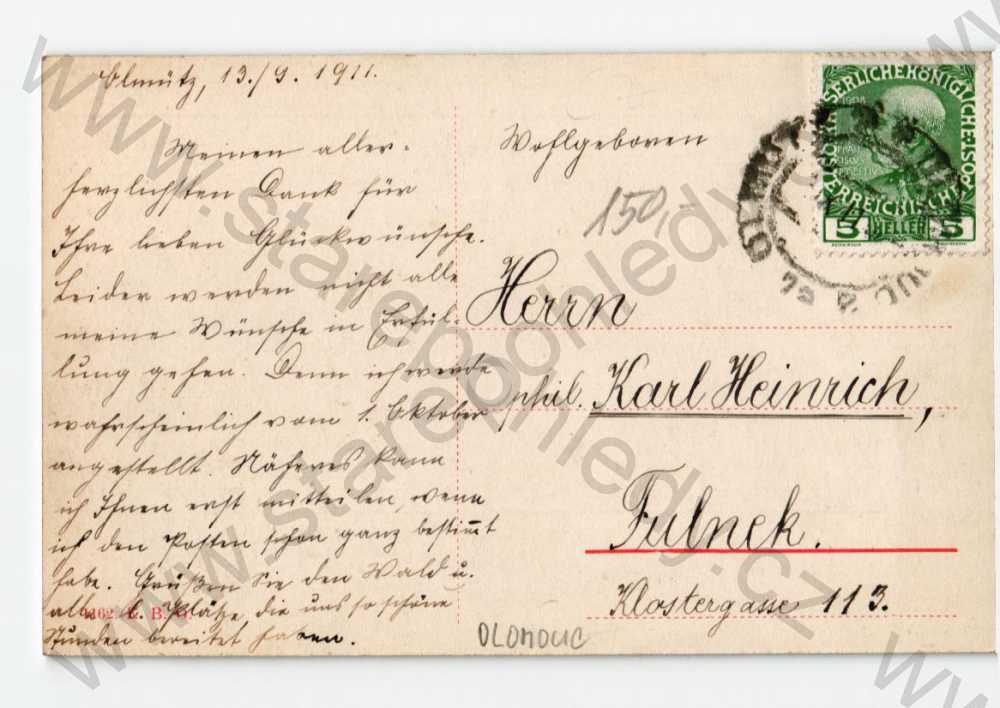 Olmütz, 13./9. 1911.
Meinen aller-
herzlichsten Dank für
Ihre lieben Glückwünsche.
Leider werden nicht alle
meine Wünsche in Erfül-
lung gehen. Denn ich werde
wahrscheinlich vom 1. Oktober
angestellt. Näheres kann
ich Ihnen erst mitteilen, wenn
ich den Posten schon ganz bestimmt
habe. Grüßen Sie den Wald u.
alle Plätze, die uns so schöne
Stunden bereitet haben.
4162 E. B.
Wohlgeboren
150,-
Herrn
phil. Karl Heinrich,
Fulnek.
Klostergasse 113.
OLOMOUC
KAISERLICHE KÖNIGLICHE
ÖSTERREICHISCHE POST
1908
5 HELLER 5
OLMÜTZ
www.starepohledy.cz
www.starepohledy.cz